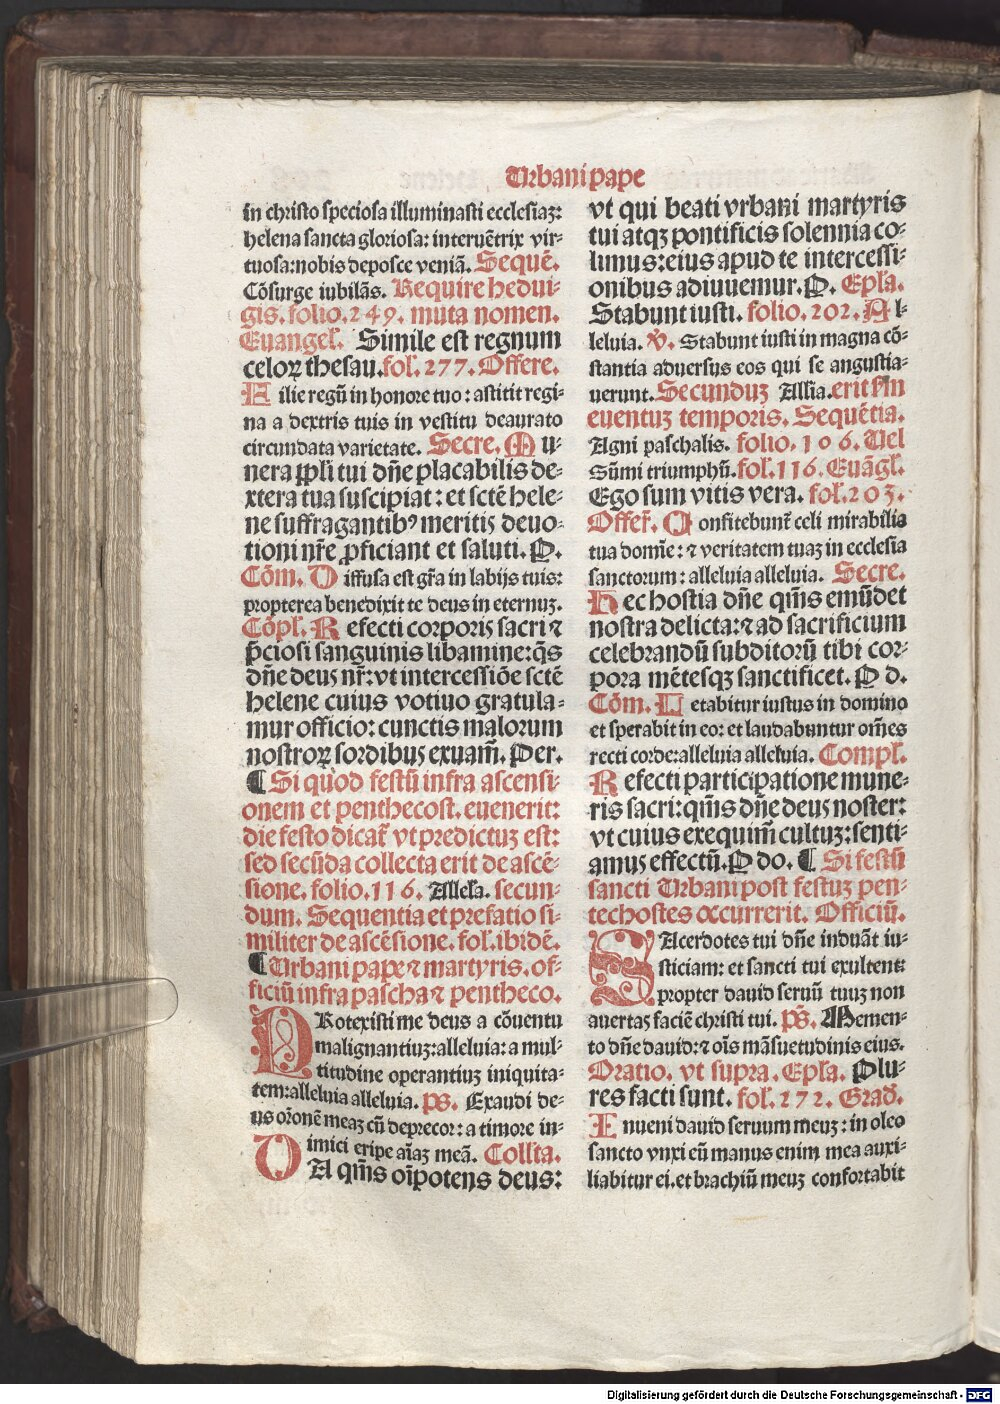 Urbani pape
in christo speciosa illuminasti ecclesiaz:
helena sancta gloriosa: interuētrix vir-
tuosa: nobis deposce veniā. Sequē.
Cōsurge iubilās. Require hedui-
gis. folio. 249. muta nomen.
Euangel. Simile est regnum
celoꝝ thesau. fol. 277. Offere.
Filie regū in honore tuo: astitit regi-
na a dextris tuis in vestitu deaurato
circundata varietate. Secre. Mu-
nera ppli tui dn̄e placabilis de-
xtera tua suscipiat: et sctē hele-
ne suffragantibꝰ meritis deuo-
tioni nr̄e ꝓficiant et saluti. P.
Cōm. Diffusa est gr̄a in labijs tuis:
propterea benedixit te deus in eternuz.
Cōpl. Refecti corporis sacri ⁊
p̄ciosi sanguinis libamine: q̄s
dn̄e deus nr̄: vt intercessiōe sctē
helene cuius votiuo gratula-
mur officio: cunctis malorum
nostroꝝ sordibus exuam̄. Per.
¶ Si quod festū infra ascensi-
onem et penthecost. euenerit:
die festo dicat̄ vt predictuz est:
sed secūda collecta erit de ascē-
sione. folio. 116. Allel'a. secun-
dum. Sequentia et prefatio si-
militer de ascēsione. fol. ibidē.
¶ Urbani pape ⁊ martyris. of-
ficiū infra pascha ⁊ pentheco.
PRotexisti me deus a cōuentu
malignantiuz: alleluia: a mul-
titudine operantiuz iniquita-
tem: alleluia alleluia. ps. Exaudi de-
us or̄onē meaz cū deprecor: a timore in-
imici eripe aīaz meā. Coll'ta.
DA qm̄s oīpotens deus:
vt qui beati vrbani martyris
tui atqꝫ pontificis solennia co-
limus: eius apud te intercessi-
onibus adiuuemur. P. Epl'a.
Stabunt iusti. folio. 202. Al-
leluia. ℣. Stabunt iusti in magna cō-
stantia aduersus eos qui se angustia-
uerunt. Secunduz All'ia. erit in
euentuz temporis. Sequētia.
Agni paschalis. folio. 106. Uel
Sūmi triumphū. fol. 116. Euāgl.
Ego sum vitis vera. fol. 203.
Offer̄. Confitebunt̄ celi mirabilia
tua domīe: ⁊ veritatem tuaz in ecclesia
sanctorum: alleluia alleluia. Secre.
Hec hostia dn̄e qm̄s emūdet
nostra delicta: ⁊ ad sacrificium
celebrandū subditorū tibi cor-
pora mētesqꝫ sanctificet. P d.
Cōm. Letabitur iustus in domino
et sperabit in eo: et laudabuntur om̄es
recti corde: alleluia alleluia. Compl.
Refecti participatione mune-
ris sacri: qm̄s dn̄e deus noster:
vt cuius exequim̄ cultuz: senti-
amus effectū. P do. ¶ Si festū
sancti Urbani post festuz pen-
techostes occurrerit. Officiū.
SAcerdotes tui dn̄e induāt iu-
sticiam: et sancti tui exultent:
propter dauid seruū tuuz non
auertas faciē christi tui. ps. Memen-
to dn̄e dauid: ⁊ oīs māsuetudinis eius.
Oratio. vt supra. Epl'a. Plu-
res facti sunt. fol. 272. Grad.
Inueni dauid seruum meuz: in oleo
sancto vnxi eū manus enim mea auxi-
liabitur ei. et brachiū meuz confortabit
Digitalisierung gefördert durch die Deutsche Forschungsgemeinschaft - DFG